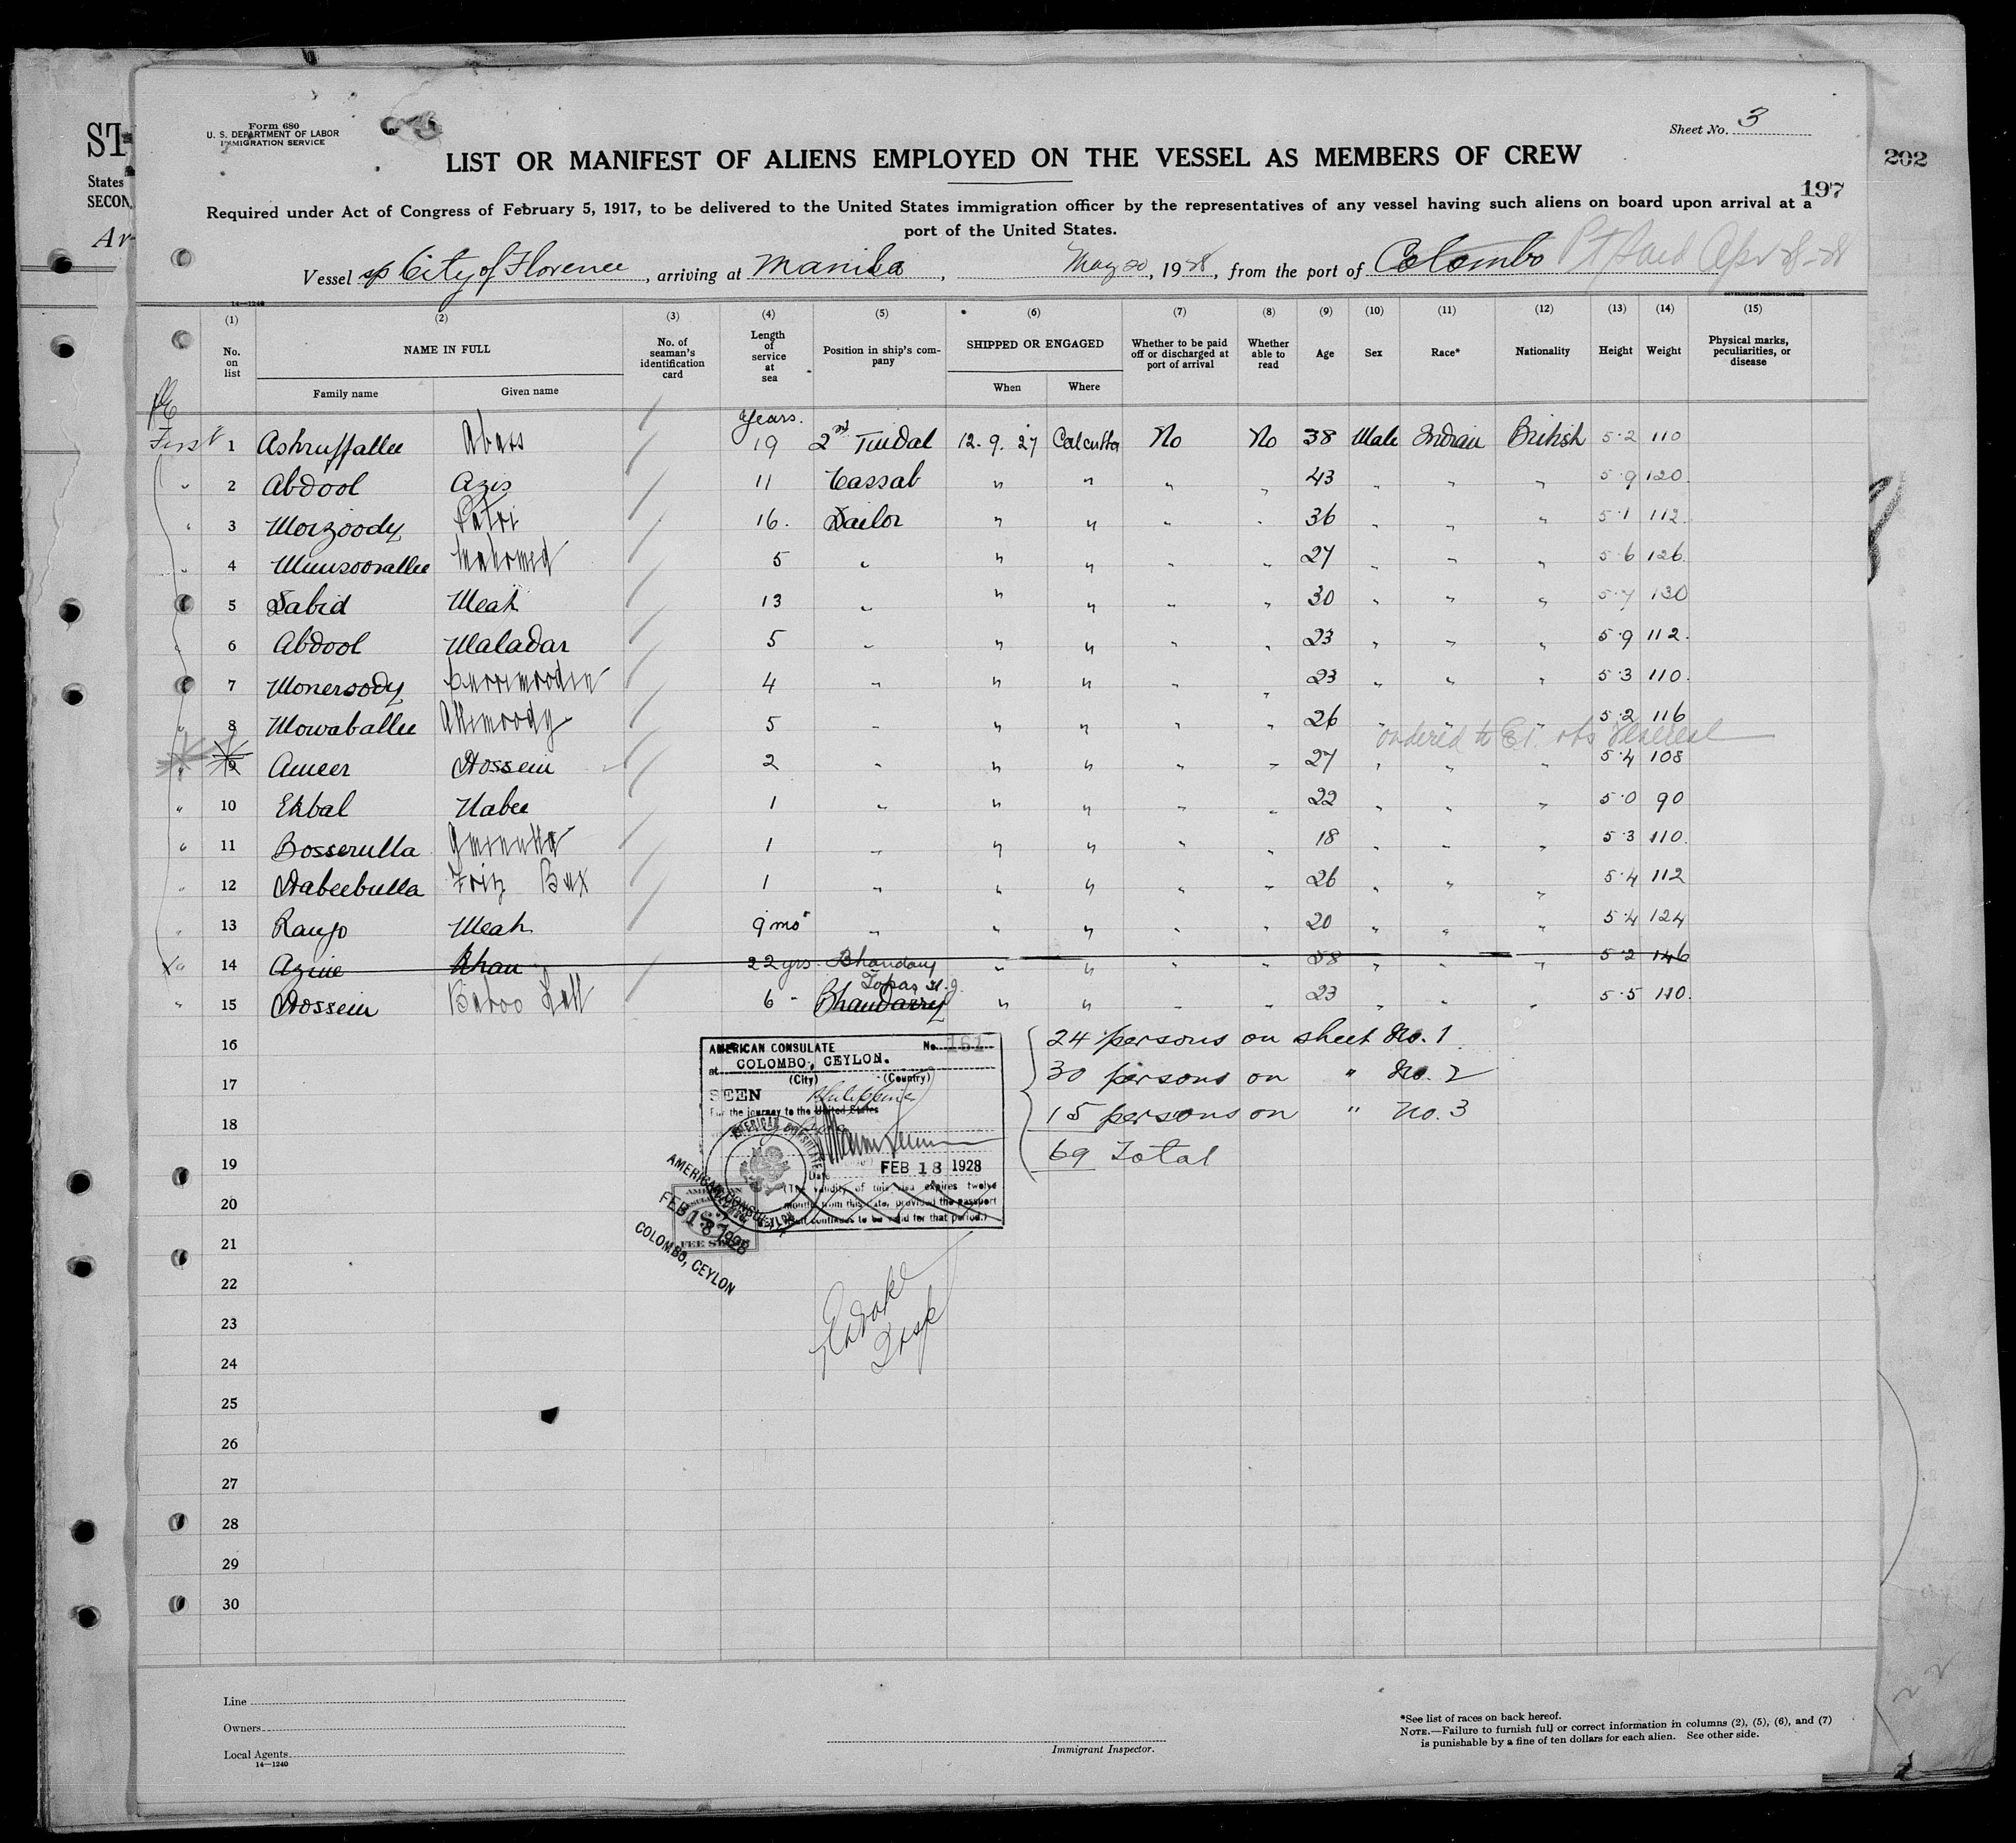 ST
States
SECON
Ar
Form 680
U. S. DEPARTMENT OF LABOR
IMMIGRATION SERVICE
Sheet No. 3
LIST OR MANIFEST OF ALIENS EMPLOYED ON THE VESSEL AS MEMBERS OF CREW
202
197
Required under Act of Congress of February 5, 1917, to be delivered to the United States immigration officer by the representatives of any vessel having such aliens on board upon arrival at a
port of the United States.
Vessel City of Florence, arriving at Manila, May 20, 1928, from the port of Colombo
14—1240 GOVERNMENT PRINTING OFFICE
(1) (2) (3) (4) (5) (6) (7) (8) (9) (10) (11) (12) (13) (14) (15)
No. on list NAME IN FULL No. of seaman's identification card Length of service at sea Position in ship's company SHIPPED OR ENGAGED Whether to be paid off or discharged at port of arrival Whether able to read Age Sex Race* Nationality Height Weight Physical marks, peculiarities, or disease
Family name Given name When Where
Years.
First 1 Ashruffallee Abass 19 2nd Tindal 12.9.27 Calcutta No No 38 Male Indian British 5.2 110
" 2 Abdool Azis 11 Cassab " " " " 43 " " " 5.9 120
" 3 Morzoody 16. Sailor " " " " 36 " " " 5.1 112
" 4 Munsoorallee Mahomed 5 " " " " " 27 " " " 5.6 126
" 5 Sabid Meah 13 " " " " " 30 " " " 5.7 130
" 6 Abdool Maladar 5 " " " " " 23 " " " 5.9 112.
" 7 Monersody 4 " " " " " 23 " " " 5.3 110.
" 8 Mowaballee Allimoody 5 " " " " " 26 " " " 5.2 116
ordered to
" 9 Ameer Hossein 2 " " " " " 27 " " " 5.4 108
" 10 Ekbal Nabee 1 " " " " " 22 " " " 5.0 90
" 11 Bosserulla 1 " " " " " 18 " " " 5.3 110.
" 12 Habeebulla Bux 1 " " " " " 26 " " " 5.4 112
" 13 Meah 9 mos " " " " " 20 " " " 5.4 124
" 14 Azine Khan 22 yrs. Bhandary " " " " 58 " " " 5.2 146
Topas
" 15 Hossein Baboo 6 Bhandarry " " " " 23 " " " 5.5 110.
16
17
18
19
20
21
22
23
24
25
26
27
28
29
30
24 persons on sheet No. 1
30 persons on " No. 2
15 persons on " No. 3
69 Total
AMERICAN CONSULATE No. 161
at COLOMBO, CEYLON.
(City) (Country)
SEEN Philippine
For the journey to the United States
Date FEB 18 1928
(The validity of this visa expires twelve
months from this date, provided the passport
shall continues to be valid for that period.)
AMERICAN CONSULATE
FEB 18 1928
COLOMBO, CEYLON
FEE STAMP
Line
Owners
Local Agents
14—1240
Immigrant Inspector.
*See list of races on back hereof.
NOTE.—Failure to furnish full or correct information in columns (2), (5), (6), and (7)
is punishable by a fine of ten dollars for each alien. See other side.